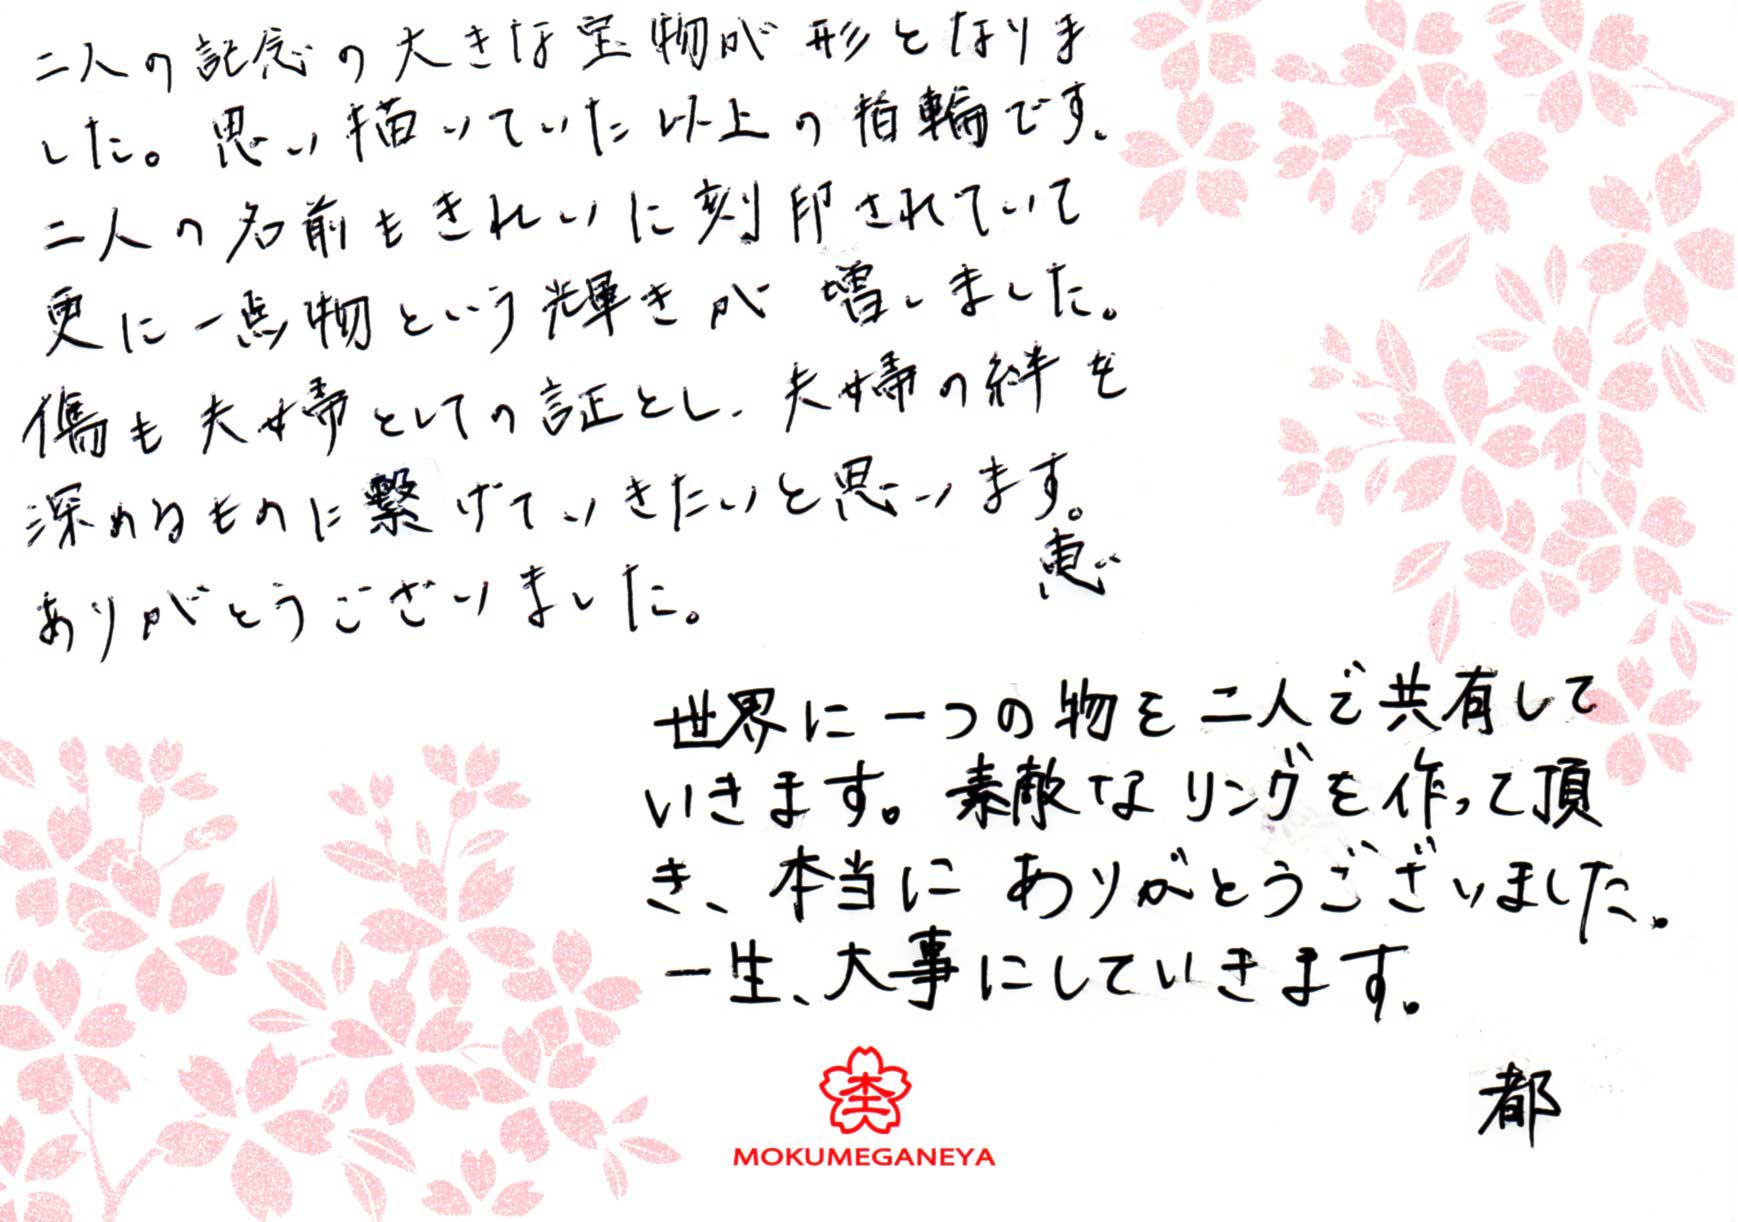 二人の記念の大きな宝物が形となりま
した。思い描いていた以上の指輪です。
二人の名前もきれいに刻印されていて
更に一点物という輝きが増しました。
傷も夫婦としての証とし、夫婦の絆を
深めるものに繋げていきたいと思います。
恵
ありがとうございました。
世界に一つの物を二人で共有して
いきます。素敵なリングを作って頂
き、本当にありがとうございました。
一生、大事にしていきます。
都
MOKUMEGANEYA